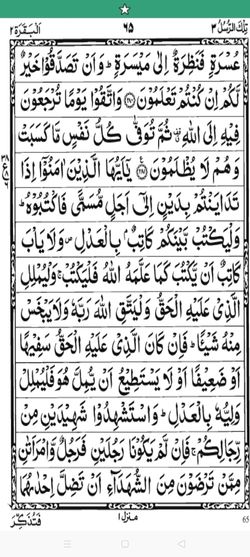 تِلْكَ الرُّسُلُ ٣ ٦٥ اَلْبَقَرَة ٢
عُسْرَةٍ فَنَظِرَةٌ اِلٰى مَيْسَرَةٍ ؕ وَاَنْ تَصَدَّقُوْا خَيْرٌ
لَّكُمْ اِنْ كُنْتُمْ تَعْلَمُوْنَ ﴿۲۸۰﴾ وَاتَّقُوْا يَوْمًا تُرْجَعُوْنَ
فِيْهِ اِلَى اللّٰهِ ۗ ثُمَّ تُوَفّٰى كُلُّ نَفْسٍ مَّا كَسَبَتْ
وَهُمْ لَا يُظْلَمُوْنَ ﴿۲۸۱﴾ يٰۤاَيُّهَا الَّذِيْنَ اٰمَنُوْۤا اِذَا
تَدَايَنْتُمْ بِدَيْنٍ اِلٰۤى اَجَلٍ مُّسَمًّى فَاكْتُبُوْهُ ؕ
وَلْيَكْتُبْ بَّيْنَكُمْ كَاتِبٌۢ بِالْعَدْلِ ۪ وَلَا يَاْبَ
كَاتِبٌ اَنْ يَّكْتُبَ كَمَا عَلَّمَهُ اللّٰهُ فَلْيَكْتُبْ ۚ وَلْيُمْلِلِ
الَّذِيْ عَلَيْهِ الْحَقُّ وَلْيَتَّقِ اللّٰهَ رَبَّهٗ وَلَا يَبْخَسْ
مِنْهُ شَيْـًٔا ؕ فَاِنْ كَانَ الَّذِيْ عَلَيْهِ الْحَقُّ سَفِيْهًا
اَوْ ضَعِيْفًا اَوْ لَا يَسْتَطِيْعُ اَنْ يُّمِلَّ هُوَ فَلْيُمْلِلْ
وَلِيُّهٗ بِالْعَدْلِ ؕ وَاسْتَشْهِدُوْا شَهِيْدَيْنِ مِنْ
رِّجَالِكُمْ ۚ فَاِنْ لَّمْ يَكُوْنَا رَجُلَيْنِ فَرَجُلٌ وَّامْرَاَتٰنِ
مِمَّنْ تَرْضَوْنَ مِنَ الشُّهَدَآءِ اَنْ تَضِلَّ اِحْدٰىهُمَا
منزل ۱
65
فَتُذَكِّرَ